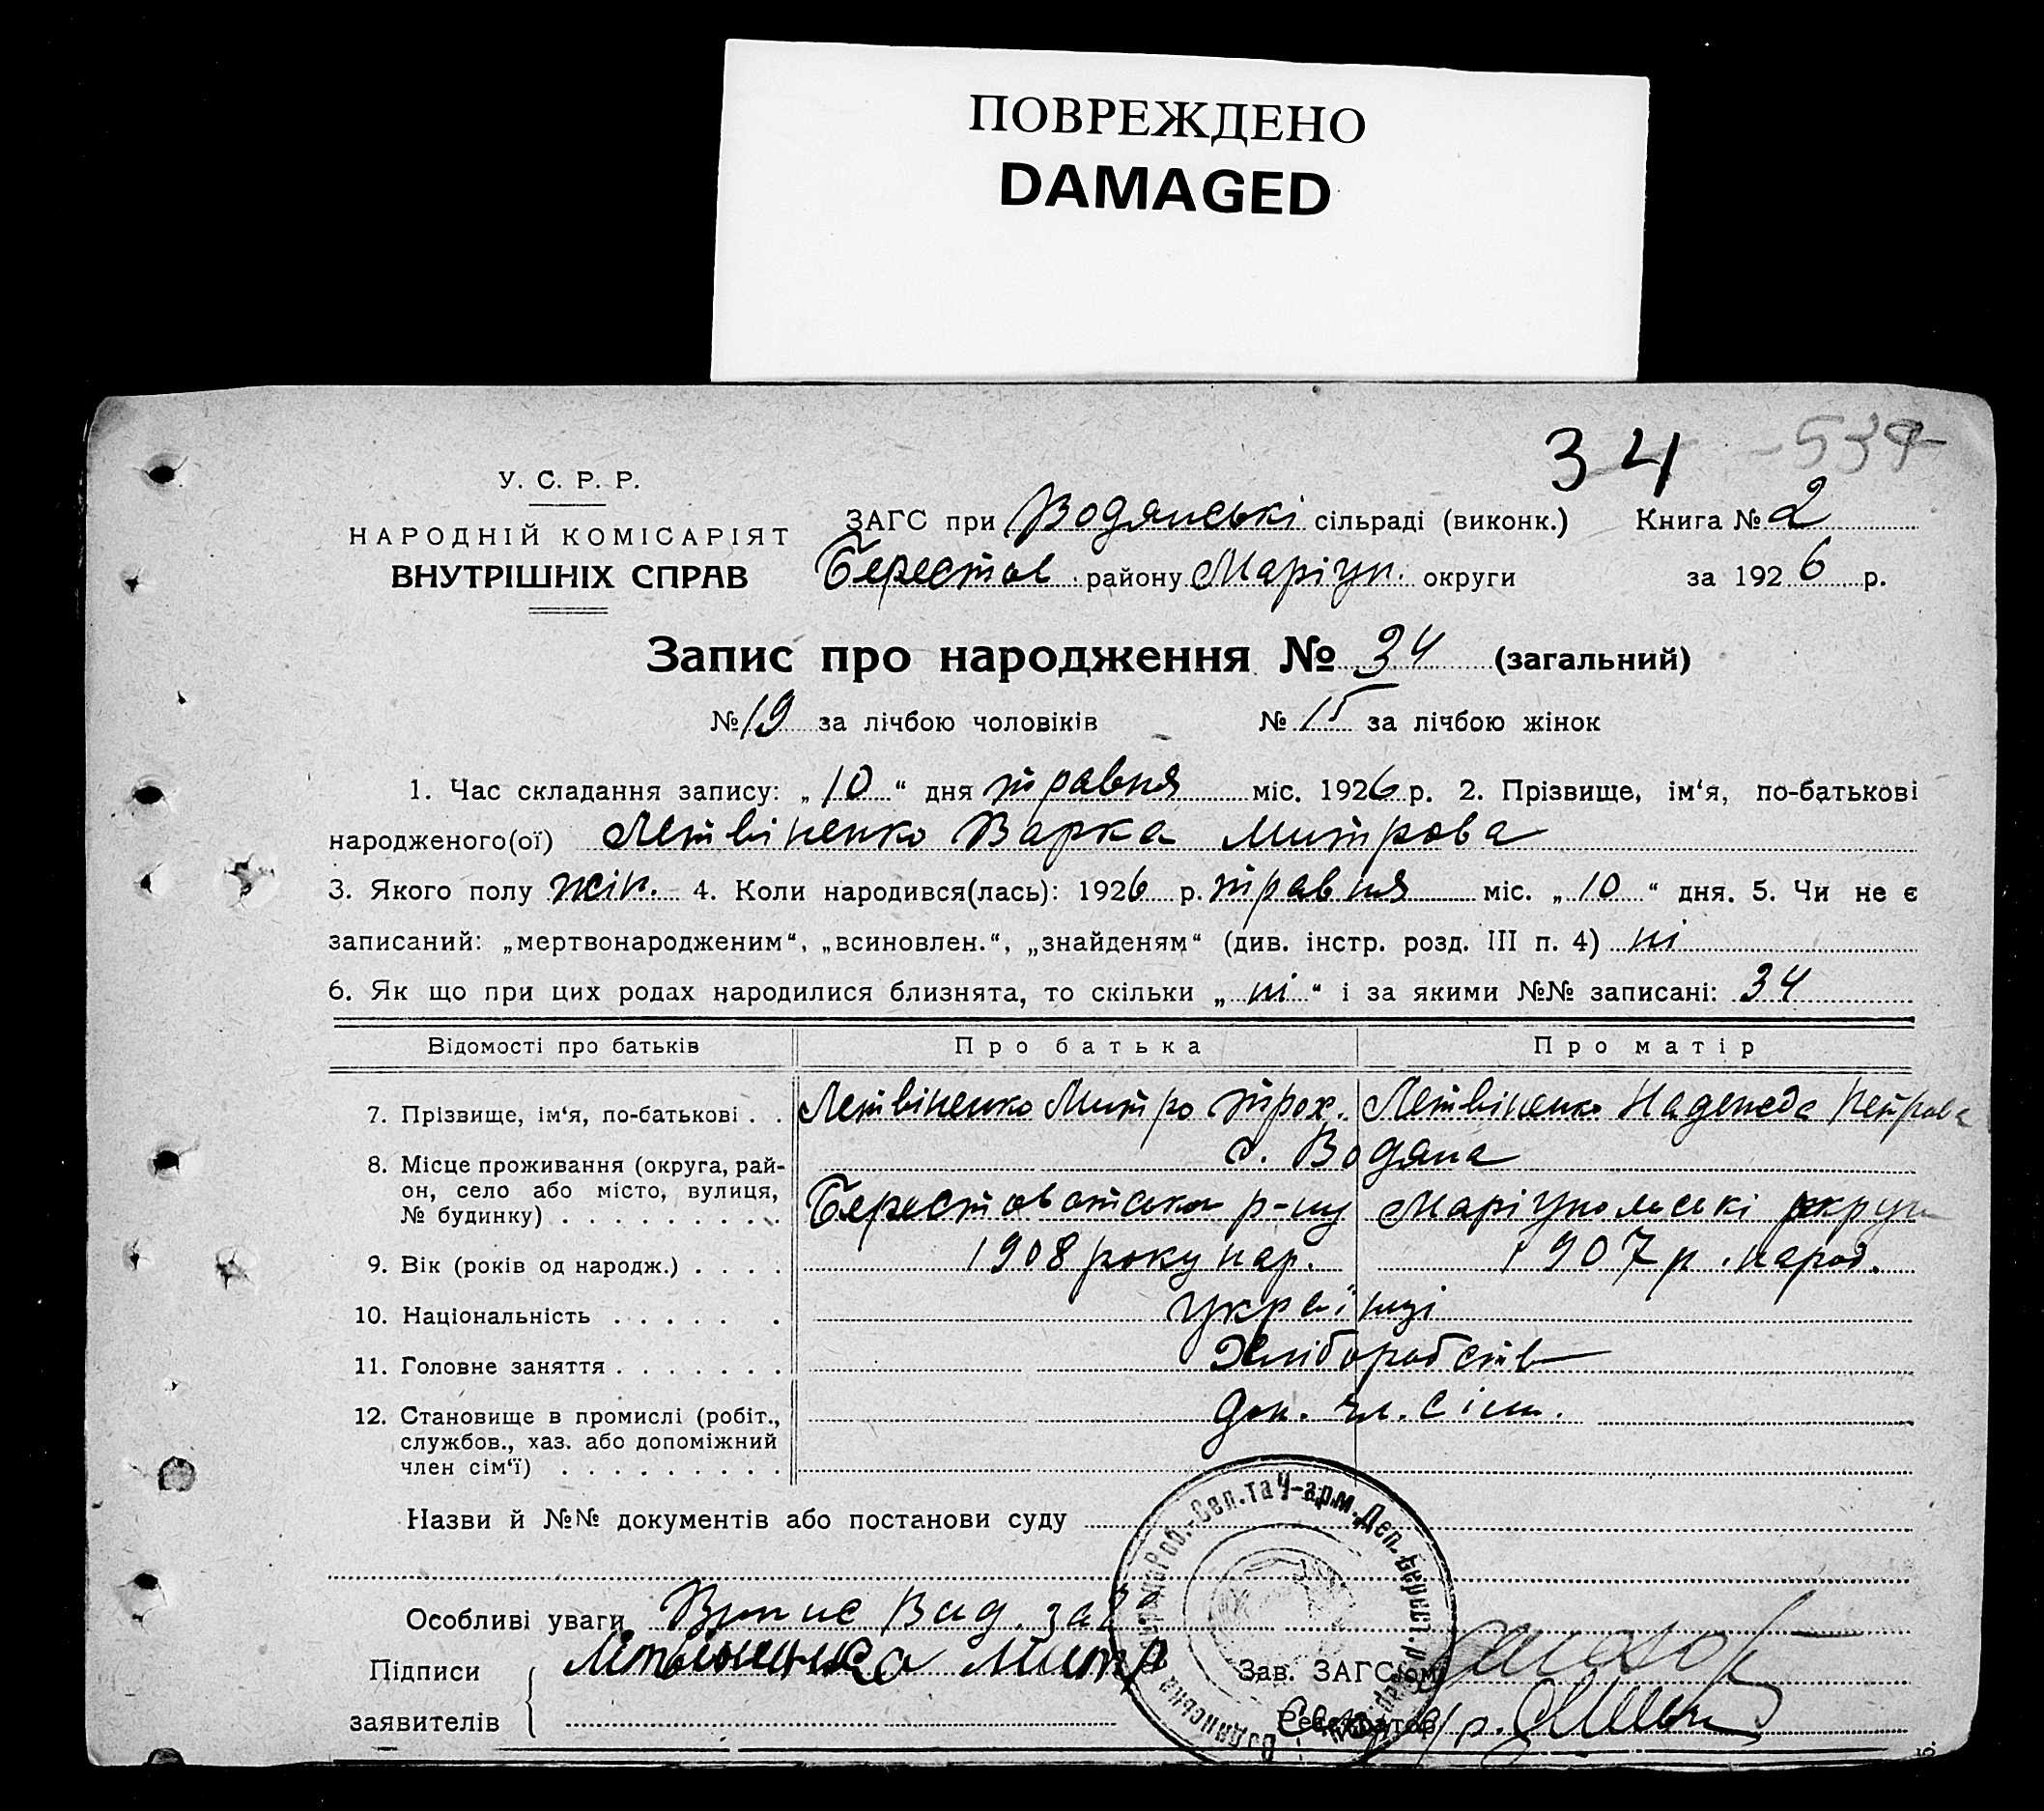 ПОВРЕЖДЕНО
DAMAGED
34 -534
У. С. Р. Р.
НАРОДНІЙ КОМІСАРІЯТ
ВНУТРІШНІХ СПРАВ
ЗАГС при Водянські сільраді (виконк.) Книга № 2
Берестов району Маріуп. округи за 1926 р.
Запис про народження № 34 (загальний)
№ 19 за лічбою чоловіків № 15 за лічбою жінок
1. Час складання запису: „10“ дня травня міс. 1926 р. 2. Прізвище, ім‘я, по-батькові
народженого(ої) Летвіненко Варка Митрова
3. Якого полу жін. 4. Коли народився(лась): 1926 р. травня міс. „10“ дня. 5. Чи не є
записаний: „мертвонародженим“, „всиновлен.“, „знайденям“ (див. інстр. розд. III п. 4) ні
6. Як що при цих родах народилися близнята, то скільки „ні“ і за якими №№ записані: 34
Відомості про батьків Про батька Про матір
7. Прізвище, ім‘я, по-батькові . . Летвіненко Митро Трох. Летвіненко Надежда Петрова
8. Місце проживання (округа, рай- с. Водяна
он, село або місто, вулиця, Берестовотськом р-ну Маріупольські округи
№ будинку) . . . . . . . . .
9. Вік (років од народж.) . . . . 1908 року нар. 1907 р. народ.
10. Національність . . . . . . українці
11. Головне заняття . . . . . . . Хліборобств
12. Становище в промислі (робіт., доп. чл. сім.
службов., хаз. або допоміжний
член сім‘ї) . . . . . . . . .
Назви й №№ документів або постанови суду
Особливі уваги Випис Вид. за
Підписи Летвіненко Митр Зав. ЗАГС‘ом
заявителів Реєстратор
Водянська Роб.-Сел. та Ч-арм. Деп. Берест.